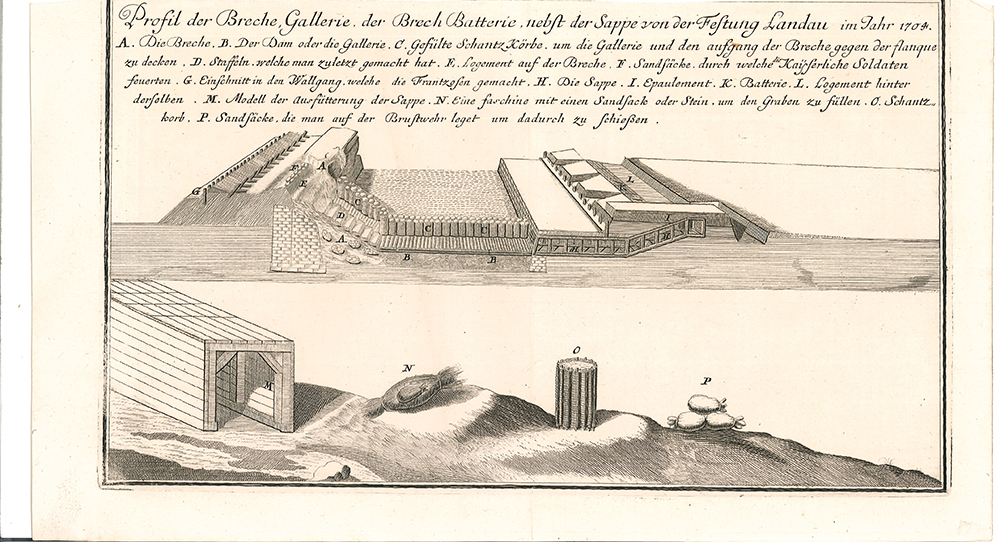 Profil der Breche, Gallerie, der Brech Batterie, nebst der Sappe von der Festung Landau im Jahr 1704.
A. Die Breche. B. Der Dam oder die Gallerie. C. Gefülte Schantz Körbe, um die Gallerie und den aufgang der Breche gegen der flanque
zu decken. D. Staffeln, welche man zuletzt gemacht hat. E. Logement auf der Breche. F. Sandsäcke, durch welche die Kaÿserliche Soldaten
feuerten. G. Einschnitt in den Wallgang, welche die Frantzosen gemacht. H. Die Sappe. I. Epaulement. K. Batterie. L. Logement hinter
derselben. M. Modell der Ausfütterung der Sappe. N. Eine faschine mit einen Sandsack oder Stein, um den Graben zu füllen. O. Schantz
korb. P. Sandsäcke, die man auf der Brustwehr leget um dadurch zu schießen.
A
F
E
G
C
L
K
D
I
C
C
H
H
A
B
B
M
N
O
P